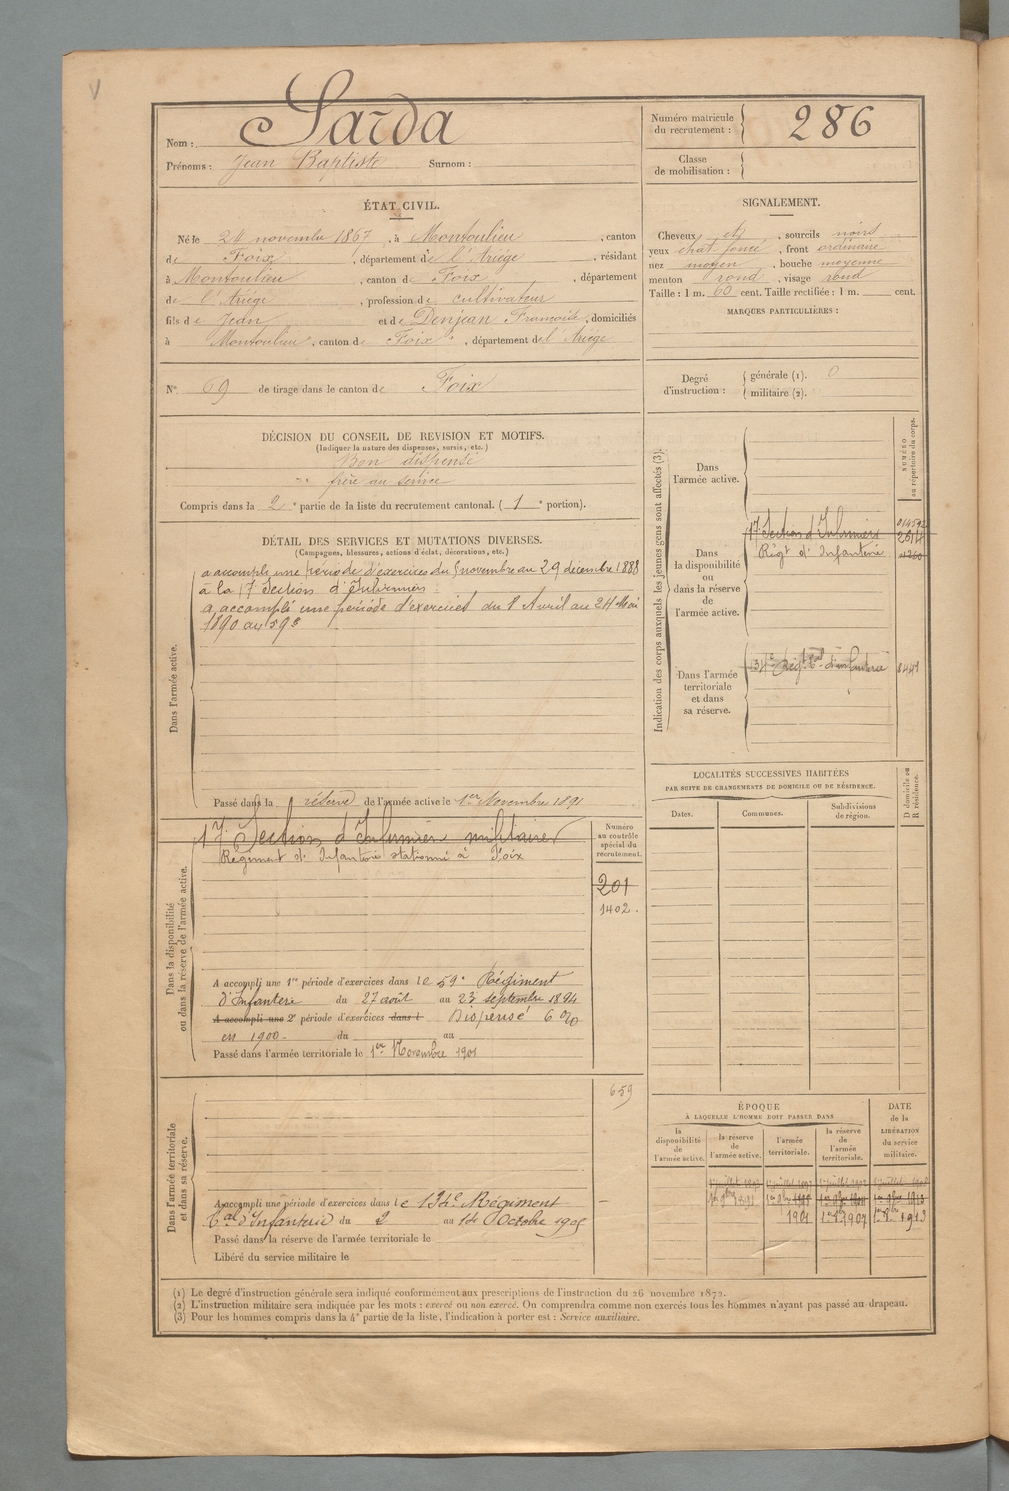 Nom : Sarda
Prénoms : Jean Baptiste Surnom :
Numéro matricule du recrutement : 286
Classe de mobilisation :
ÉTAT CIVIL.
Né le 24 novembre 1867, à Montoulieu, canton
de Foix, département de l'Ariége, résidant
à Montoulieu, canton de Foix, département
de l'Ariége, profession de cultivateur
fils de Jean et de Denjean Françoise, domiciliés
à Montoulieu, canton de Foix, département de l'Ariége
N° 69 de tirage dans le canton de Foix
SIGNALEMENT.
Cheveux et, sourcils noirs
yeux chat. foncé, front ordinaire
nez moyen, bouche moyenne
menton rond, visage rond
Taille : 1 m. 60 cent. Taille rectifiée : 1 m. cent.
MARQUES PARTICULIÈRES :
Degré d'instruction : générale (1). 0
militaire (2).
DÉCISION DU CONSEIL DE REVISION ET MOTIFS.
(Indiquer la nature des dispenses, sursis, etc.)
Bon dispensé
frère au service
Compris dans la 2e partie de la liste du recrutement cantonal. (1e portion).
DÉTAIL DES SERVICES ET MUTATIONS DIVERSES.
(Campagnes, blessures, actions d'éclat, décorations, etc.)
Dans l'armée active.
a accompli une période d'exercices du 5 novembre au 29 décembre 1888
à la 17e Section d'Infirmiers.
a accompli une période d'exercices du 1 Avril au 24 Mai
1890 au 59e
Passé dans la réserve de l'armée active le 1er Novembre 1891
Dans la disponibilité ou dans la réserve de l'armée active.
17e Section d'Infirmier militaire
Régiment d'Infanterie stationné à Foix
Numéro au contrôle spécial du recrutement.
201
1402.
A accompli une 1re période d'exercices dans le 59e Régiment
d'Infanterie du 27 août au 23 septembre 1894
A accompli une 2e période d'exercices dans l Dispensé 6 %
en 1900 du au
Passé dans l'armée territoriale le 1er Novembre 1901
Dans l'armée territoriale et dans sa réserve.
659
A accompli une période d'exercices dans le 134e Régiment
tal d'Infanterie du 2 au 14 Octobre 1905
Passé dans la réserve de l'armée territoriale le
Libéré du service militaire le
Indication des corps auxquels les jeunes gens sont affectés (3).
NUMÉRO au répertoire du corps.
Dans l'armée active.
Dans la disponibilité ou dans la réserve de l'armée active.
17e Section d'Infirmiers
2614
Régt d'Infanterie
Dans l'armée territoriale et dans sa réserve.
134e Régt tal d'infanterie
LOCALITÉS SUCCESSIVES HABITÉES
PAR SUITE DE CHANGEMENTS DE DOMICILE OU DE RÉSIDENCE.
Dates. Communes. Subdivisions de région. D domicile ou R résidence.
ÉPOQUE
À LAQUELLE L'HOMME DOIT PASSER DANS
la disponibilité de l'armée active. la réserve de l'armée active. l'armée territoriale. la réserve de l'armée territoriale.
DATE de la LIBÉRATION du service militaire.
1901 1er 9bre 1907 1er 9bre 1913
(1) Le degré d'instruction générale sera indiqué conformément aux prescriptions de l'instruction du 26 novembre 1872.
(2) L'instruction militaire sera indiquée par les mots : exercé ou non exercé. On comprendra comme non exercés tous les hommes n'ayant pas passé au drapeau.
(3) Pour les hommes compris dans la 4e partie de la liste, l'indication à porter est : Service auxiliaire.